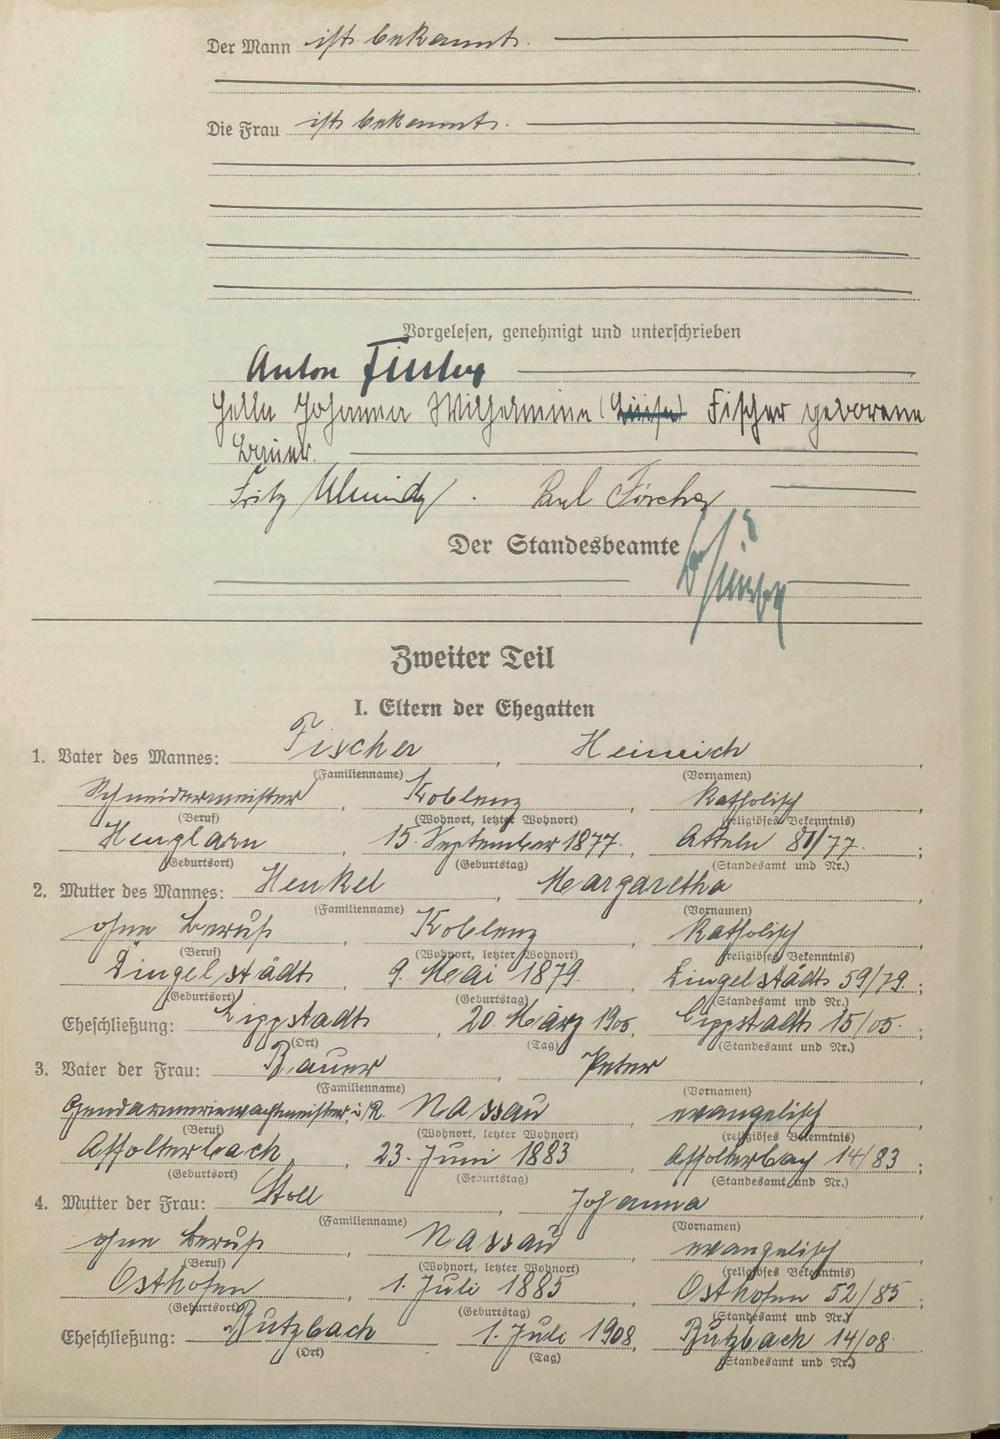 Der Mann ist bekannt.
Die Frau ist bekannt.
Vorgelesen, genehmigt und unterschrieben
Anton Fischer
Hella Johanna Wilhelmine (Luise) Fischer geborene
Bauer.
Fritz Paul
Der Standesbeamte
Zweiter Teil
I. Eltern der Ehegatten
1. Vater des Mannes: Fischer, Heinrich,
(Familienname) (Vornamen)
Schneidermeister, Koblenz, katholisch
(Beruf) (Wohnort, letzter Wohnort) (religiöses Bekenntnis)
Henglarn, 15. September 1877., Atteln 81/77.;
(Geburtsort) (Geburtstag) (Standesamt und Nr.)
2. Mutter des Mannes: Henkel, Margaretha,
(Familienname) (Vornamen)
ohne Beruf, Koblenz, katholisch
(Beruf) (Wohnort, letzter Wohnort) (religiöses Bekenntnis)
Dingelstädt, 9. Mai 1879., Dingelstädt 59/79.;
(Geburtsort) (Geburtstag) (Standesamt und Nr.)
Eheschließung: Lippstadt, 20. März 1905, Lippstadt 15/05.;
(Ort) (Tag) (Standesamt und Nr.)
3. Vater der Frau: Bauer, Peter,
(Familienname) (Vornamen)
Gendarmeriewachtmeister i/R. Nassau, evangelisch
(Beruf) (Wohnort, letzter Wohnort) (religiöses Bekenntnis)
Affolterbach, 23. Juni 1883, Affolterbach 14/83;
(Geburtsort) (Geburtstag) (Standesamt und Nr.)
4. Mutter der Frau: Stoll, Johanna,
(Familienname) (Vornamen)
ohne Beruf, Nassau, evangelisch
(Beruf) (Wohnort, letzter Wohnort) (religiöses Bekenntnis)
Osthofen, 1. Juli 1885, Osthofen 52/85;
(Geburtsort) (Geburtstag) (Standesamt und Nr.)
Eheschließung: Butzbach, 1. Juli 1908, Butzbach 14/08.
(Ort) (Tag) (Standesamt und Nr.)